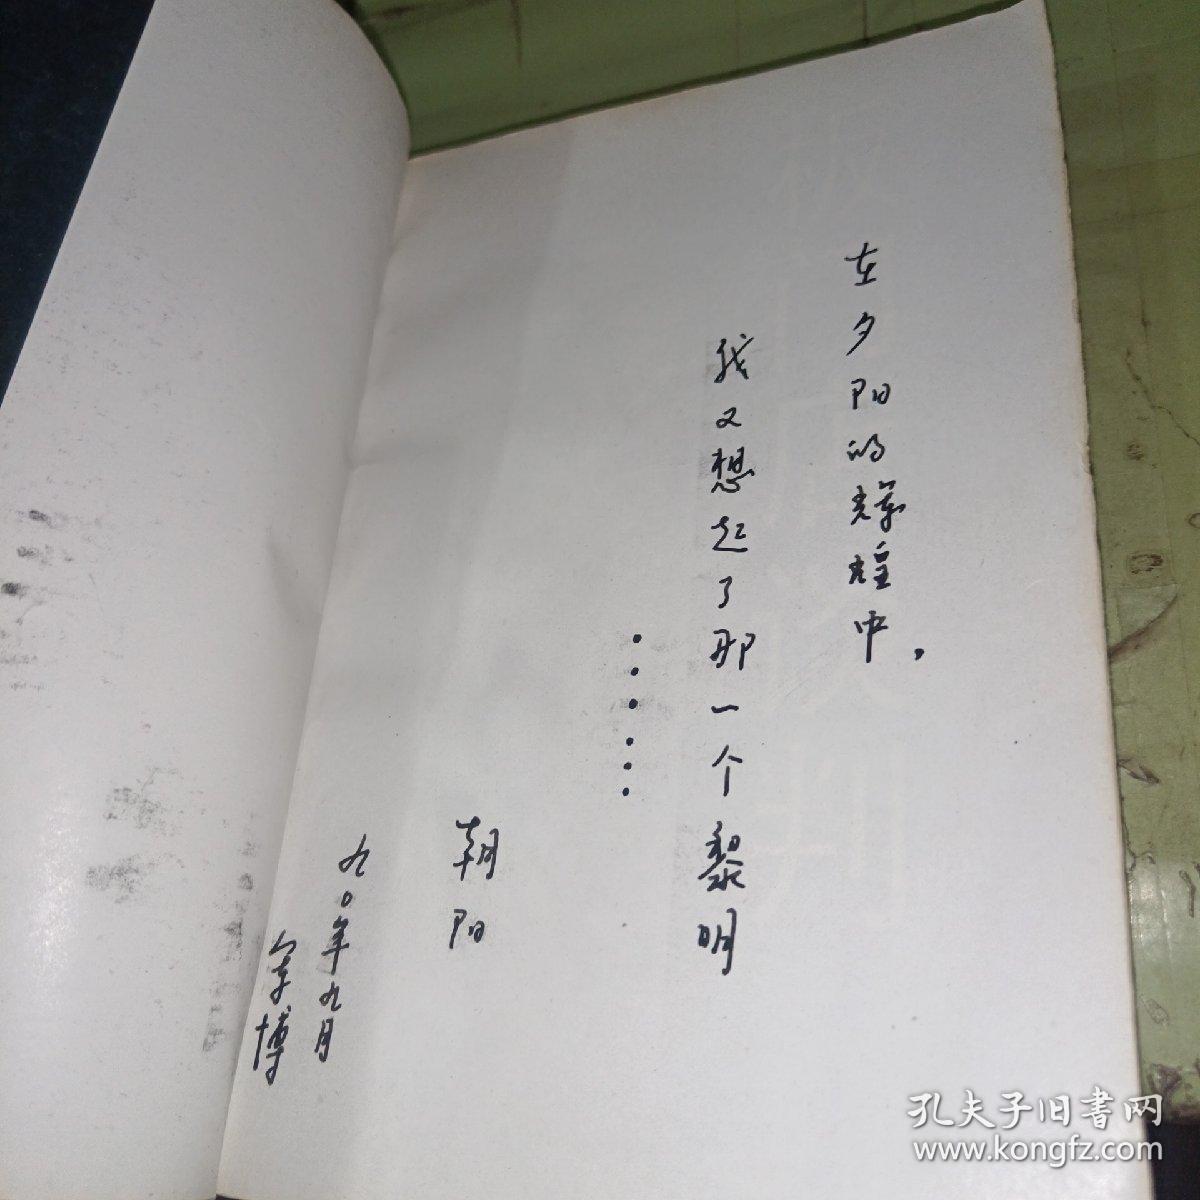 在夕阳的辉煌中，
我又想起了那一个黎明
……
朝阳
九〇年九月
孔夫子旧書网
www.kongfz.com